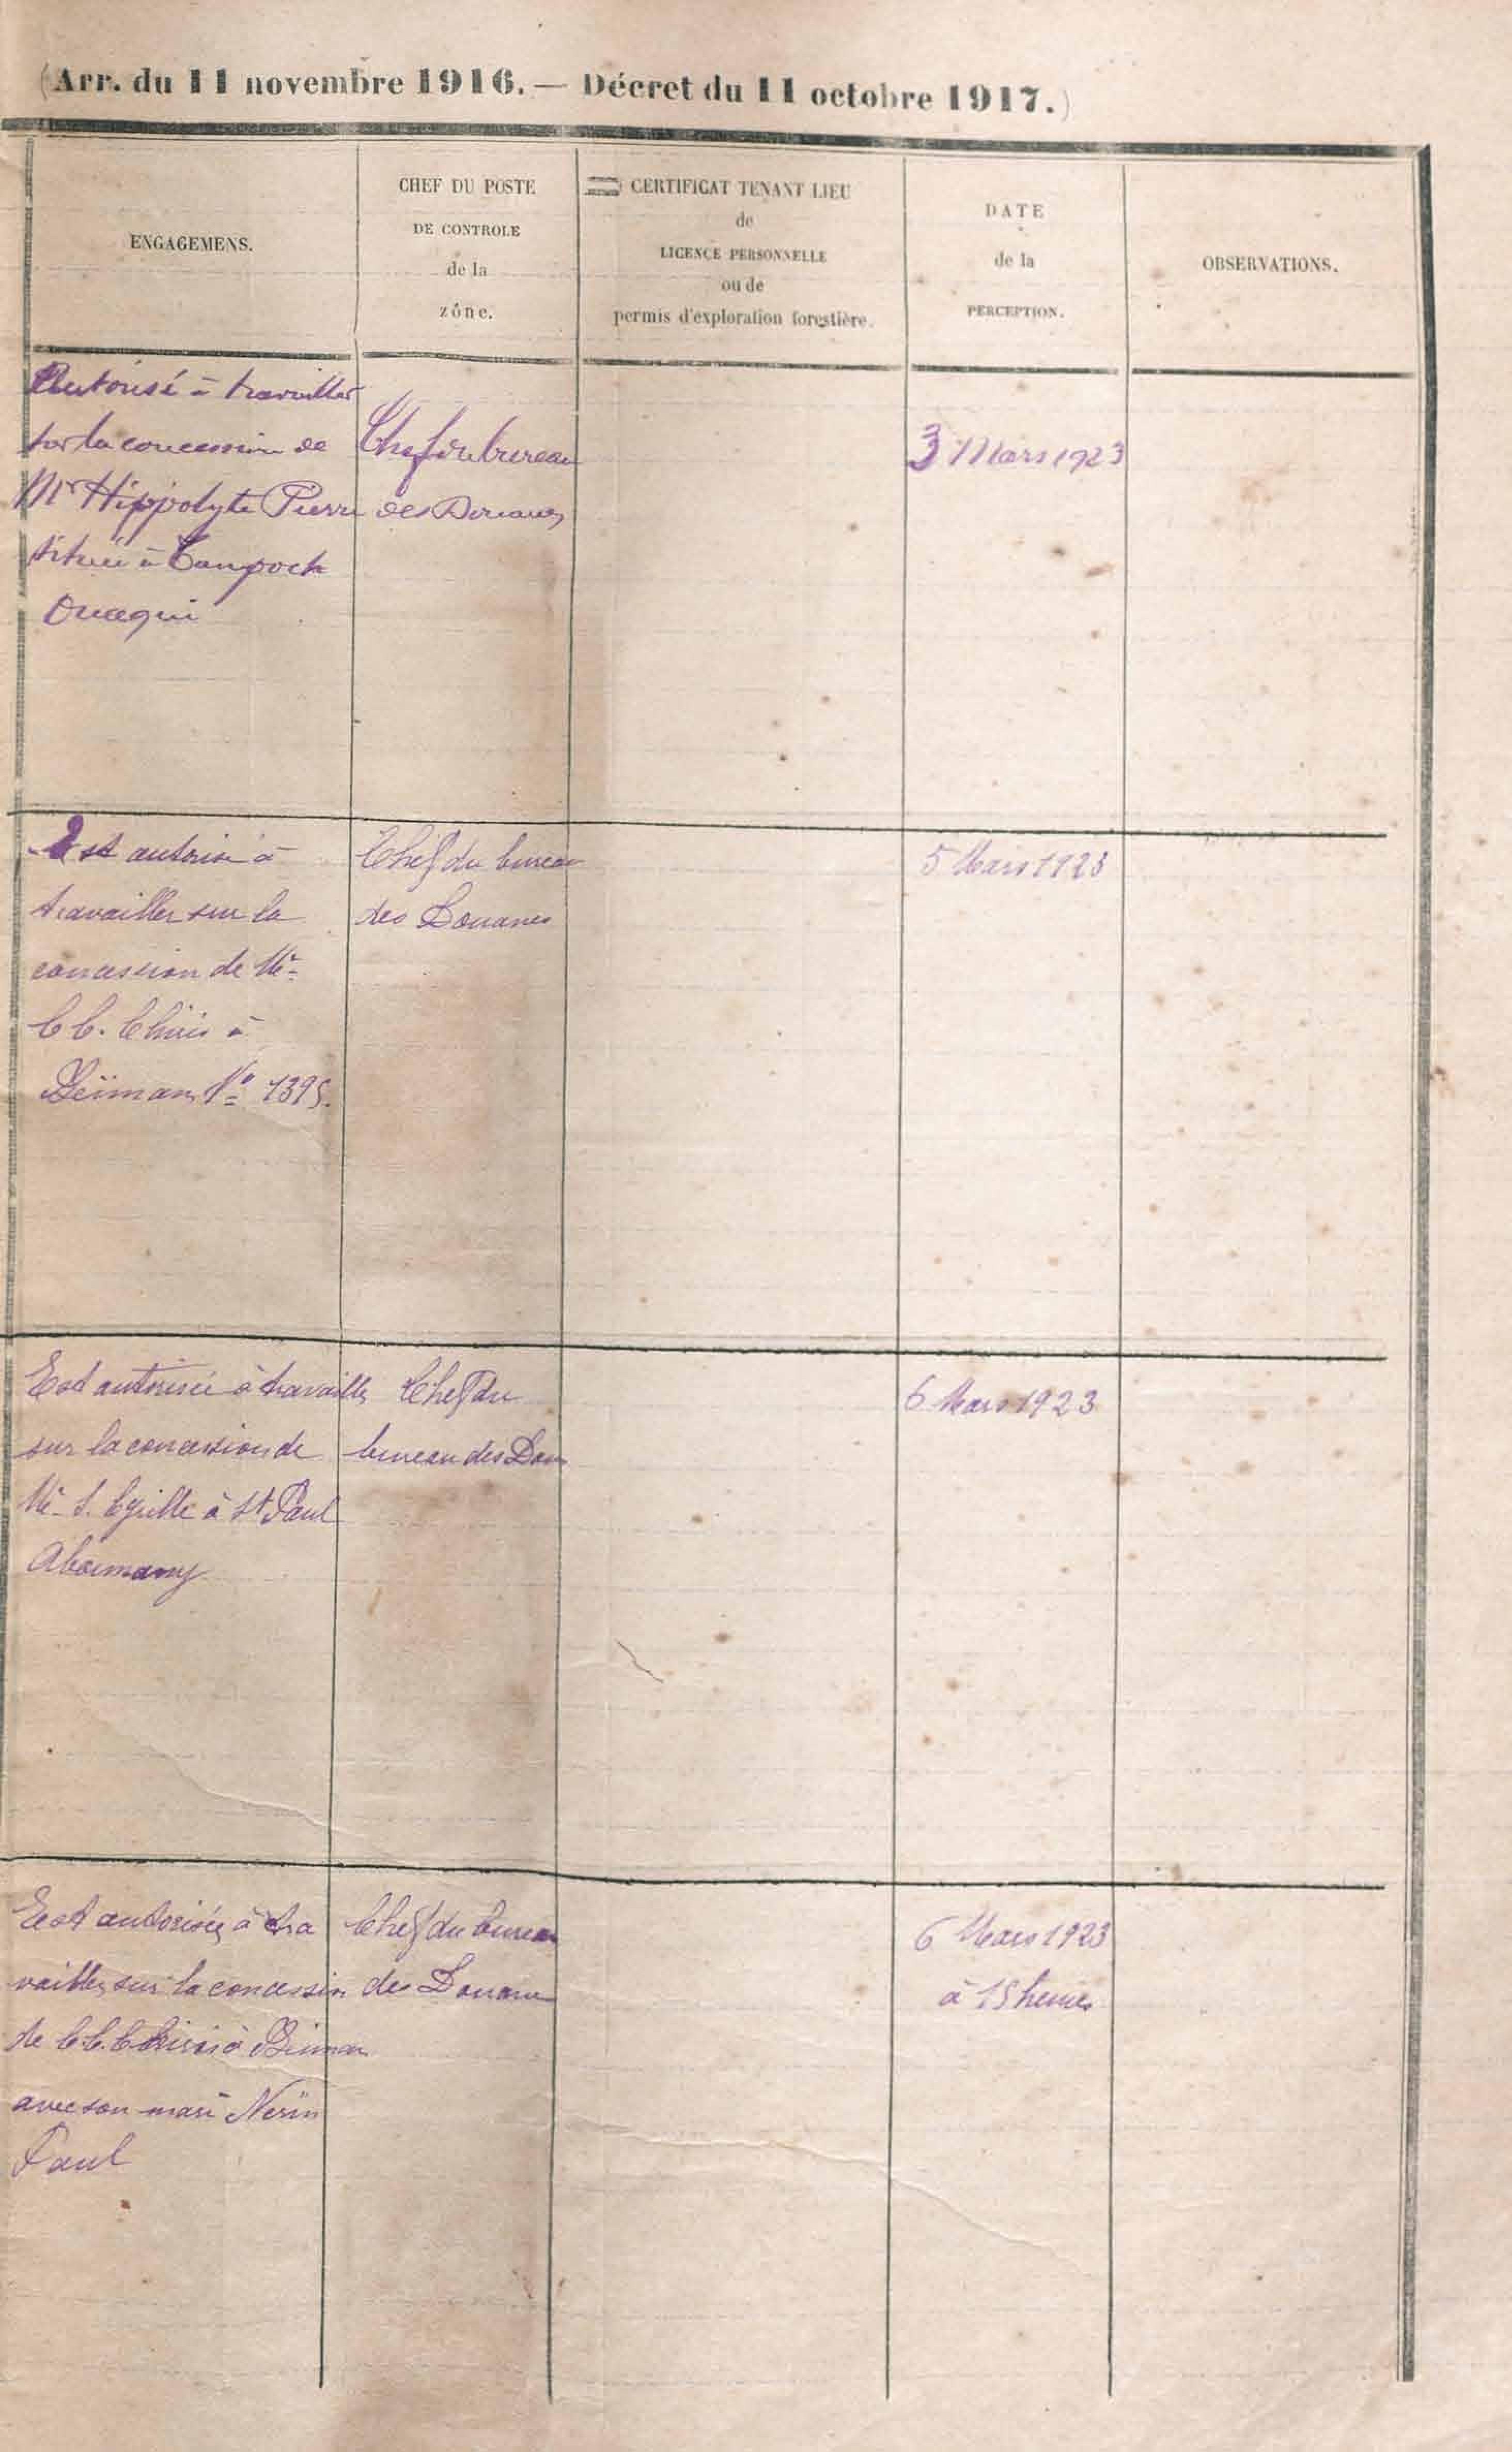 (Arr. du 11 novembre 1916. — Décret du 11 octobre 1917.)
ENGAGEMENS.
CHEF DU POSTE
DE CONTROLE
de la
zône.
CERTIFICAT TENANT LIEU
de
LICENCE PERSONNELLE
ou de
permis d'exploration forestière.
DATE
de la
PERCEPTION.
OBSERVATIONS.
Autorisé à travailler
sur la concession de
Mr Hippolyte Pierre
située à Tampock
Chef du bureau
des Douanes
3 Mars 1923
Est autorisé à
travailler sur la
concession de Mr
C C. Chiris à
Beïman No 1395.
Chef du bureau
des Douanes
5 Mars 1923
Est autorisée à travailler
sur la concession de
Mr S. Cyrille à St Paul
Abounamy
Chef du
bureau des Dou
6 Mars 1923
Est autorisée à tra
vailler sur la concession
de C.C. Chiris à Beiman
avec son mari Nérin
Paul
Chef du bureau
des Douane
6 Mars 1923
à 15 heures